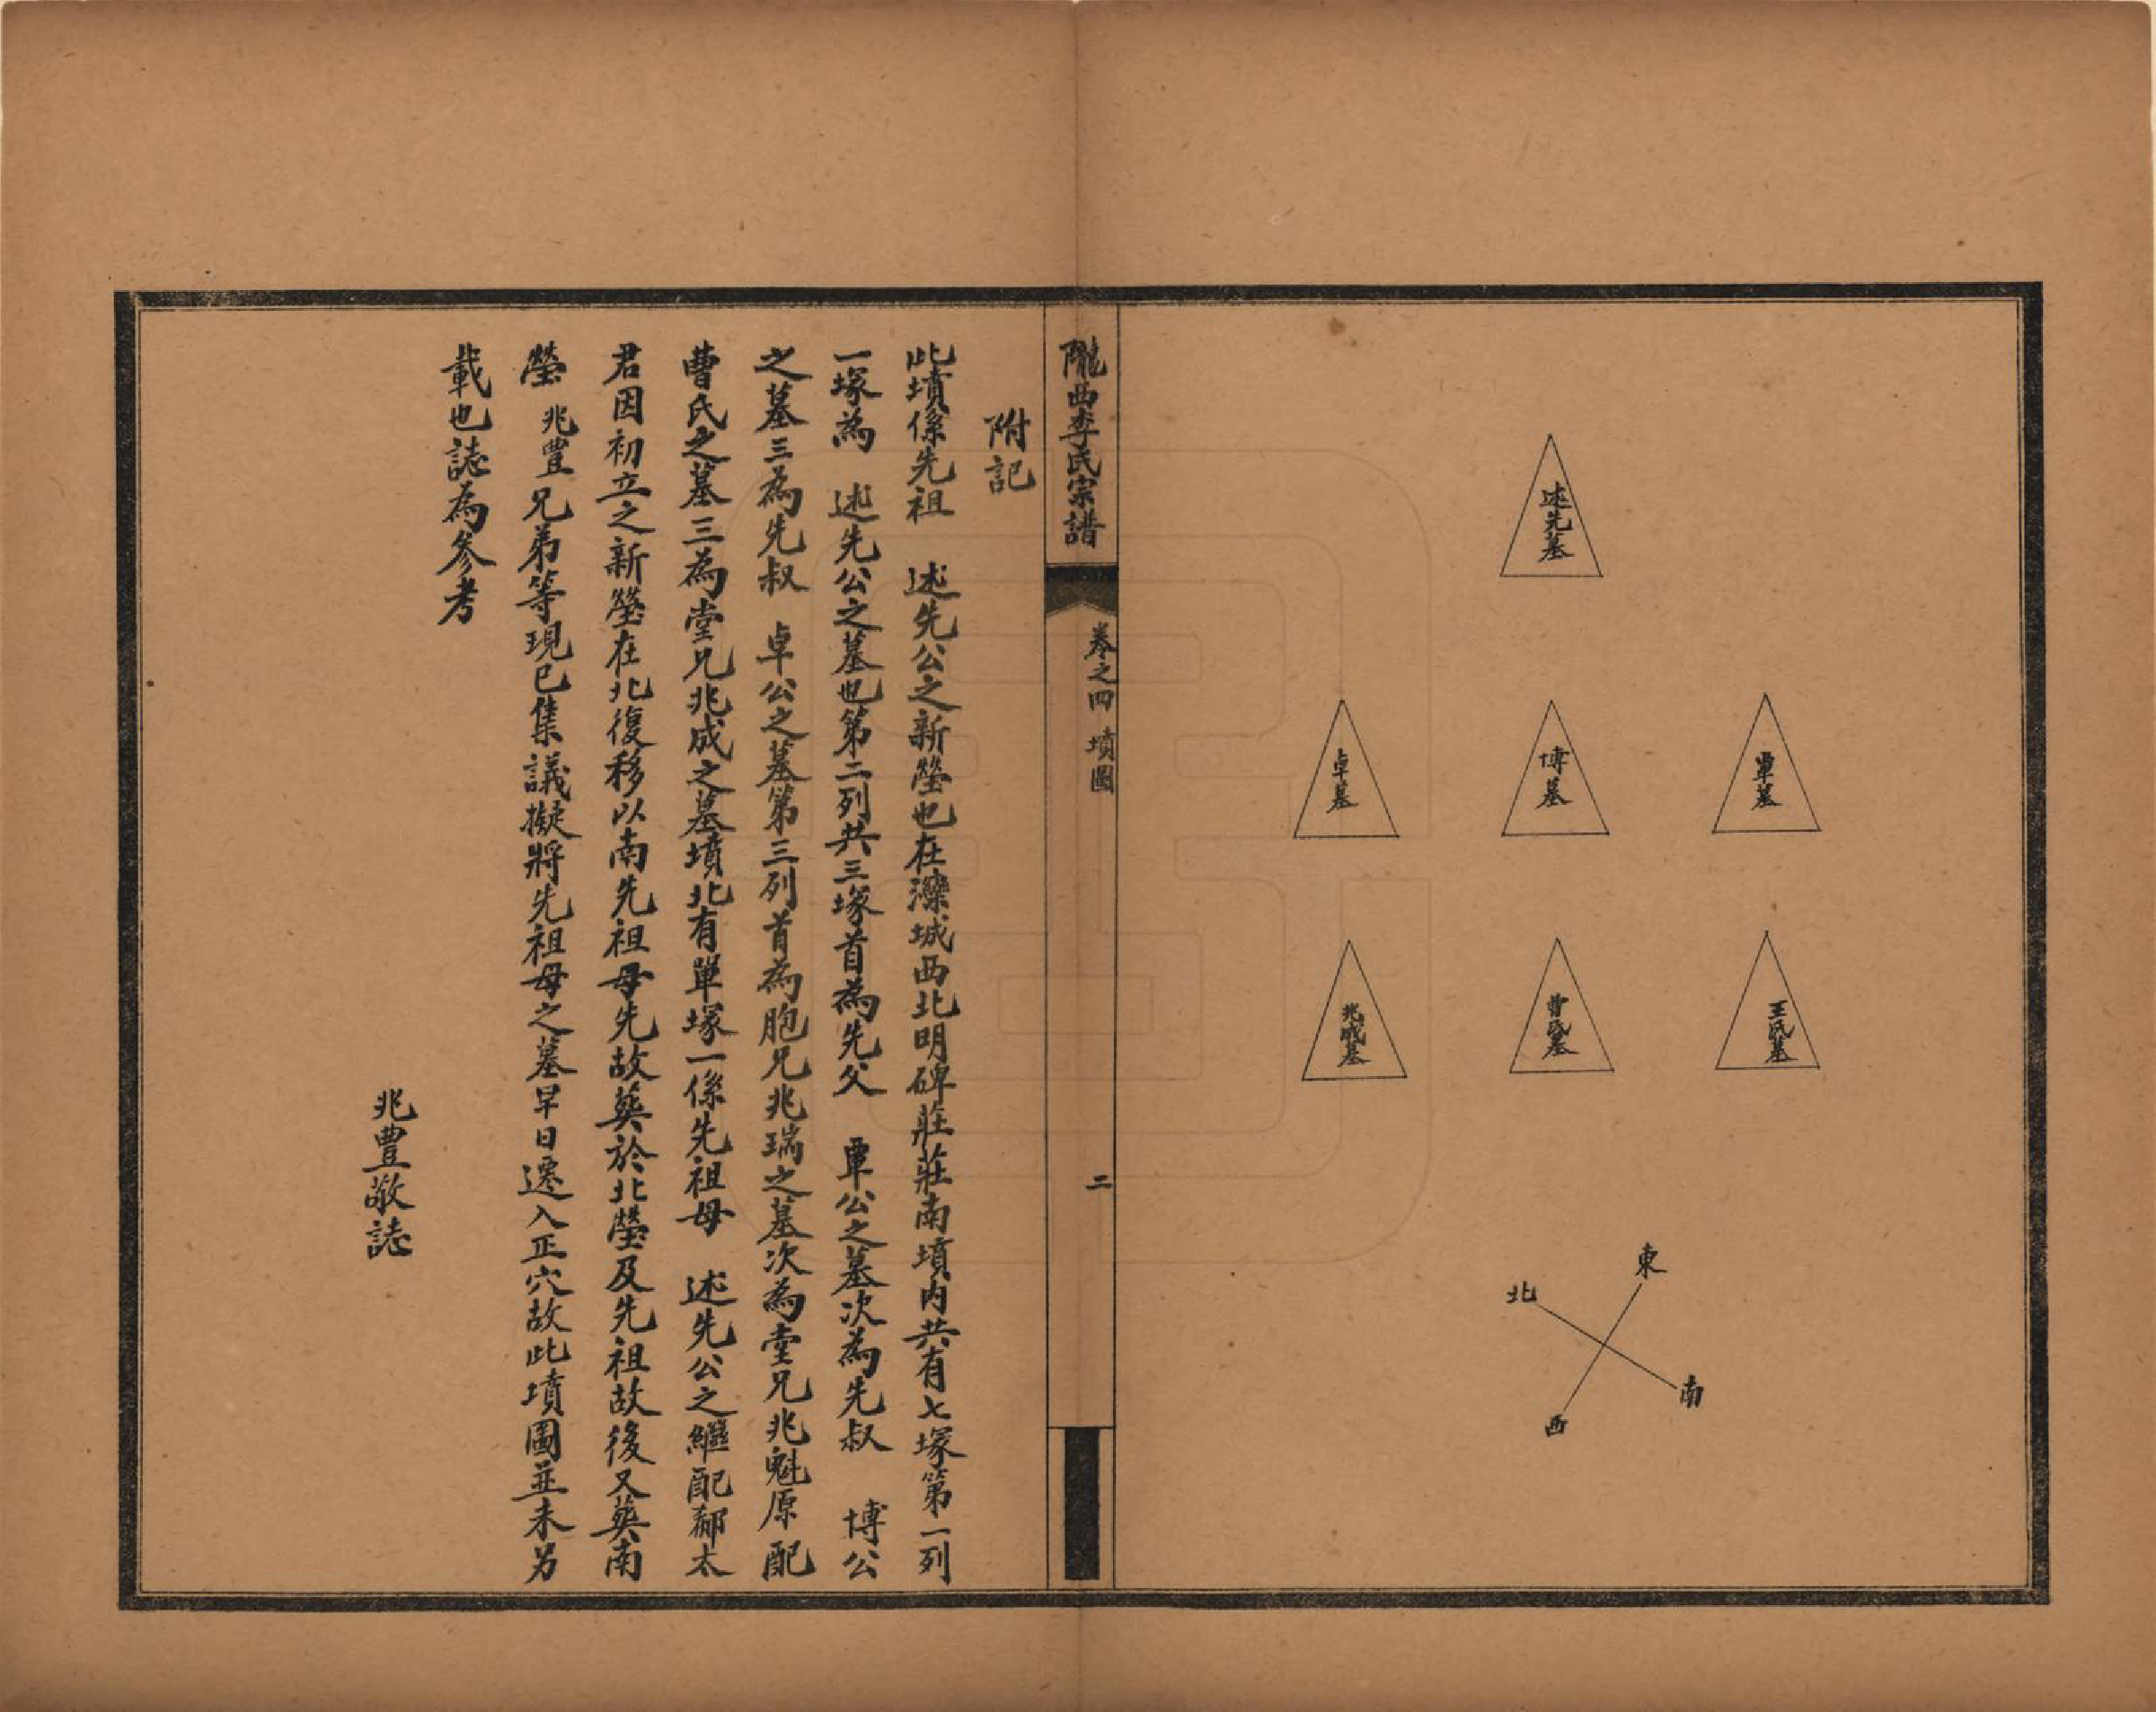 述先墓
覃墓
博墓
卓墓
王氏墓
曹氏墓
兆成墓
東
北
南
西
隴西李氏宗譜
卷之四 墳圖
二
附記
此墳係先祖 述先公之新塋也在灤城西北明碑莊莊南墳内共有七塚第一列
一塚為 述先公之墓也第二列共三塚首為先父 覃公之墓次為先叔 博公
之墓三為先叔 卓公之墓第三列首為胞兄兆瑞之墓次為堂兄兆魁原配
曹氏之墓三為堂兄兆成之墓墳北有單塚一係先祖母 述先公之繼配郝太
君因初立之新塋在北復移以南先祖母先故葬於北塋及先祖故後又葬南
塋 兆豊兄弟等現已集議擬將先祖母之墓早日遷入正穴故此墳圖並未另
載也誌為參考
兆豊敬誌